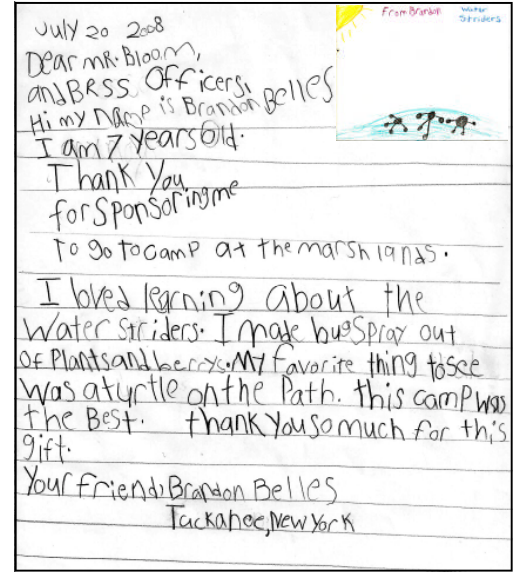 July 20 2008
From Brandon
Water
Striders
Dear mr. Bloom,
and BRSS Officers,
Hi my name is Brandon Belles
I am 7 years old.
Thank You
for Sponsoring me
To go to camp at the marsh lands.
I loved learning about the
Water Striders. I made bug Spray out
of Plants and berrys. My favorite thing to see
was a turtle on the Path. this camp was
the Best. thank you so much for this
gift.
Your friend, Brandon Belles
Tuckahoe, New York